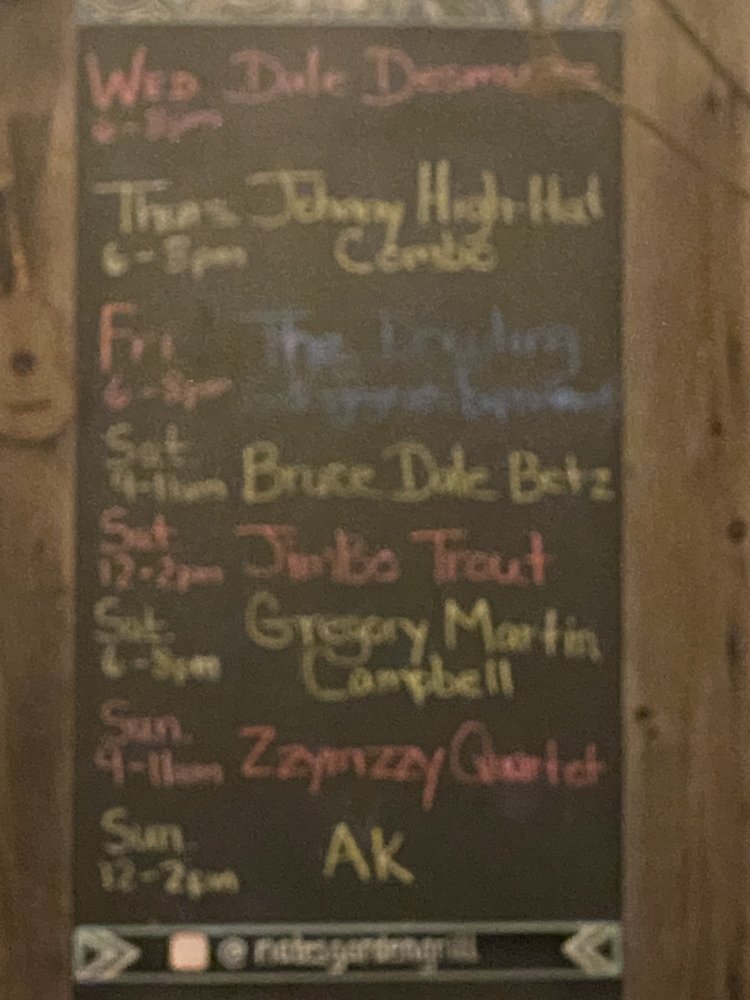 WED Dale
6-8pm
Thurs Johnny High-Hat
6-8pm Combo
Fri The
6-8pm
Sat Bruce Dale Betz
9-11am
Sat JimBo Trout
12-2pm
Sat Gregory Martin
6-8pm Campbell
Sun Zzymzzy Quartet
9-11am
Sun AK
12-2pm
@